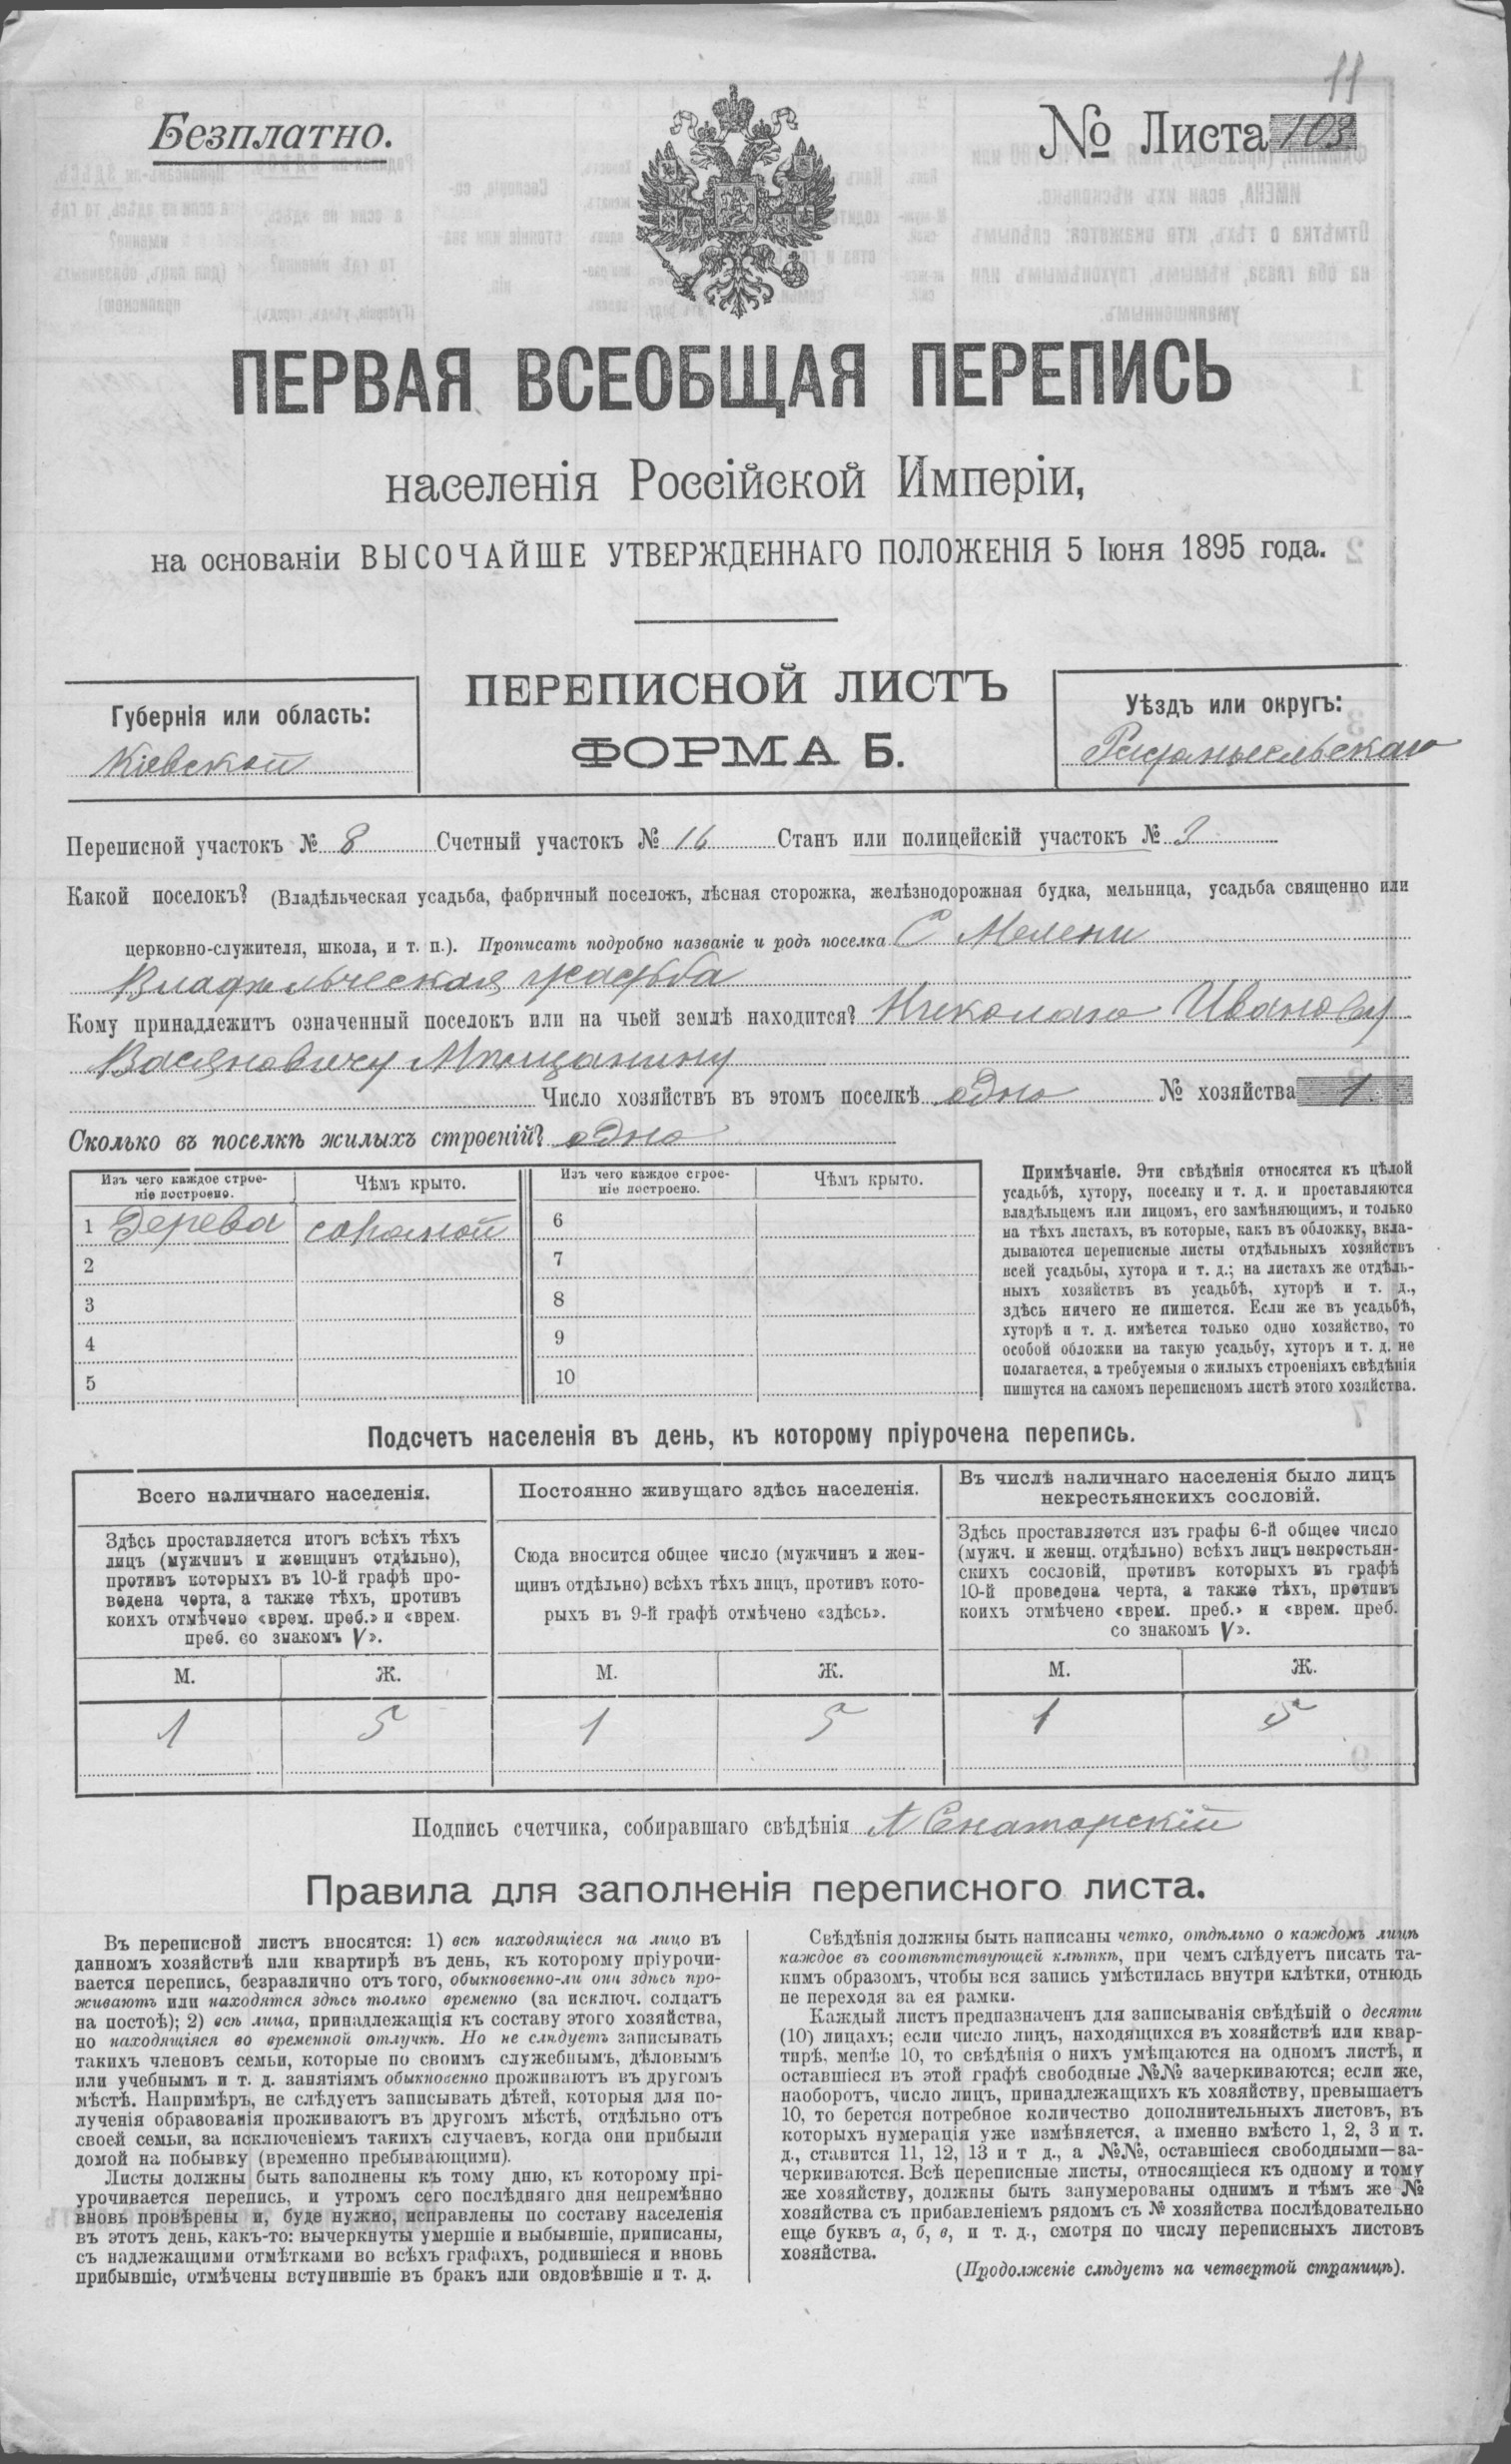 11
Безплатно.
№ Листа 103
ПЕРВАЯ ВСЕОБЩАЯ ПЕРЕПИСЬ
населенія Россійской Имперіи,
на основаніи ВЫСОЧАЙШЕ УТВЕРЖДЕННАГО ПОЛОЖЕНІЯ 5 Іюня 1895 года.
ПЕРЕПИСНОЙ ЛИСТЪ
ФОРМА Б.
Губернія или область:
Кіевской
Уѣздъ или округъ:
Радомысльскаго
Переписной участокъ № 8 Счетный участокъ № 16 Станъ или полицейскій участокъ № 3
Какой поселокъ? (Владѣльческая усадьба, фабричный поселокъ, лѣсная сторожка, желѣзнодорожная будка, мельница, усадьба священно или
церковно-служителя, школа, и т. п.). Прописать подробно названіе и родъ поселка С Мелени
Владѣльческая усадьба
Кому принадлежитъ означенный поселокъ или на чьей землѣ находится? Николаю Иванову
Васяновичу Мѣщанину
Число хозяйствъ въ этомъ поселкѣ одно № хозяйства 1.
Сколько въ поселкѣ жилыхъ строеній? одно
Изъ чего каждое строе-
ніе построено.
Чѣмъ крыто.
Изъ чего каждое строе-
ніе построено.
Чѣмъ крыто.
1 Дерева соломой 6
2 7
3 8
4 9
5 10
Примѣчаніе. Эти свѣдѣнія относятся къ цѣлой
усадьбѣ, хутору, поселку и т. д. и проставляются
владѣльцемъ или лицомъ, его замѣняющимъ, и только
на тѣхъ листахъ, въ которые, какъ въ обложку, вкла-
дываются переписные листы отдѣльныхъ хозяйствъ
всей усадьбы, хутора и т. д.; на листахъ же отдѣль-
ныхъ хозяйствъ въ усадьбѣ, хуторѣ и т. д.,
здѣсь ничего не пишется. Если же въ усадьбѣ,
хуторѣ и т. д. имѣется только одно хозяйство, то
особой обложки на такую усадьбу, хуторъ и т. д. не
полагается, а требуемыя о жилыхъ строеніяхъ свѣдѣнія
пишутся на самомъ переписномъ листѣ этого хозяйства.
Подсчетъ населенія въ день, къ которому пріурочена перепись.
Всего наличнаго населенія.
Здѣсь проставляется итогъ всѣхъ тѣхъ
лицъ (мужчинъ и женщинъ отдѣльно),
противъ которыхъ въ 10-й графѣ про-
ведена черта, а также тѣхъ, противъ
коихъ отмѣчено «врем. преб.» и «врем.
преб. со знакомъ V».
М. Ж.
1 5
Постоянно живущаго здѣсь населенія.
Сюда вносится общее число (мужчинъ и жен-
щинъ отдѣльно) всѣхъ тѣхъ лицъ, противъ кото-
рыхъ въ 9-й графѣ отмѣчено «здѣсь».
М. Ж.
1 5
Въ числѣ наличнаго населенія было лицъ
некрестьянскихъ сословій.
Здѣсь проставляется изъ графы 6-й общее число
(мужч. и женщ. отдѣльно) всѣхъ лицъ некрестьян-
скихъ сословій, противъ которыхъ въ графѣ
10-й проведена черта, а также тѣхъ, противъ
коихъ отмѣчено «врем. преб.» и «врем. преб.
со знакомъ V».
М. Ж.
1 5
Подпись счетчика, собиравшаго свѣдѣнія А Сенаторскій
Правила для заполненія переписного листа.
Въ переписной листъ вносятся: 1) всѣ находящіеся на лицо въ
данномъ хозяйствѣ или квартирѣ въ день, къ которому пріурочи-
вается перепись, безразлично отъ того, обыкновенно-ли они здѣсь про-
живаютъ или находятся здѣсь только временно (за исключ. солдатъ
на постоѣ); 2) всѣ лица, принадлежащія къ составу этого хозяйства,
но находящіяся во временной отлучкѣ. Но не слѣдуетъ записывать
такихъ членовъ семьи, которые по своимъ служебнымъ, дѣловымъ
или учебнымъ и т. д. занятіямъ обыкновенно проживаютъ въ другомъ
мѣстѣ. Напримѣръ, не слѣдуетъ записывать дѣтей, которыя для по-
лученія образованія проживаютъ въ другомъ мѣстѣ, отдѣльно отъ
своей семьи, за исключеніемъ такихъ случаевъ, когда они прибыли
домой на побывку (временно пребывающими).
Листы должны быть заполнены къ тому дню, къ которому прі-
урочивается перепись, и утромъ сего послѣдняго дня непремѣнно
вновь провѣрены и, буде нужно, исправлены по составу населенія
въ этотъ день, какъ-то: вычеркнуты умершіе и выбывшіе, приписаны,
съ надлежащими отмѣтками во всѣхъ графахъ, родившіеся и вновь
прибывшіе, отмѣчены вступившіе въ бракъ или овдовѣвшіе и т. д.
Свѣдѣнія должны быть написаны четко, отдѣльно о каждомъ лицѣ
каждое въ соотвѣтствующей клѣткѣ, при чемъ слѣдуетъ писать та-
кимъ образомъ, чтобы вся запись умѣстилась внутри клѣтки, отнюдь
не переходя за ея рамки.
Каждый листъ предназначенъ для записыванія свѣдѣній о десяти
(10) лицахъ; если число лицъ, находящихся въ хозяйствѣ или квар-
тирѣ, менѣе 10, то свѣдѣнія о нихъ умѣщаются на одномъ листѣ, и
оставшіеся въ этой графѣ свободные №№ зачеркиваются; если же,
наоборотъ, число лицъ, принадлежащихъ къ хозяйству, превышаетъ
10, то берется потребное количество дополнительныхъ листовъ, въ
которыхъ нумерація уже измѣняется, а именно вмѣсто 1, 2, 3 и т.
д., ставится 11, 12, 13 и т д., а №№, оставшіеся свободными—за-
черкиваются. Всѣ переписные листы, относящіеся къ одному и тому
же хозяйству, должны быть занумерованы однимъ и тѣмъ же №
хозяйства съ прибавленіемъ рядомъ съ № хозяйства послѣдовательно
еще буквъ а, б, в, и т. д., смотря по числу переписныхъ листовъ
хозяйства.
(Продолженіе слѣдуетъ на четвертой страницѣ).